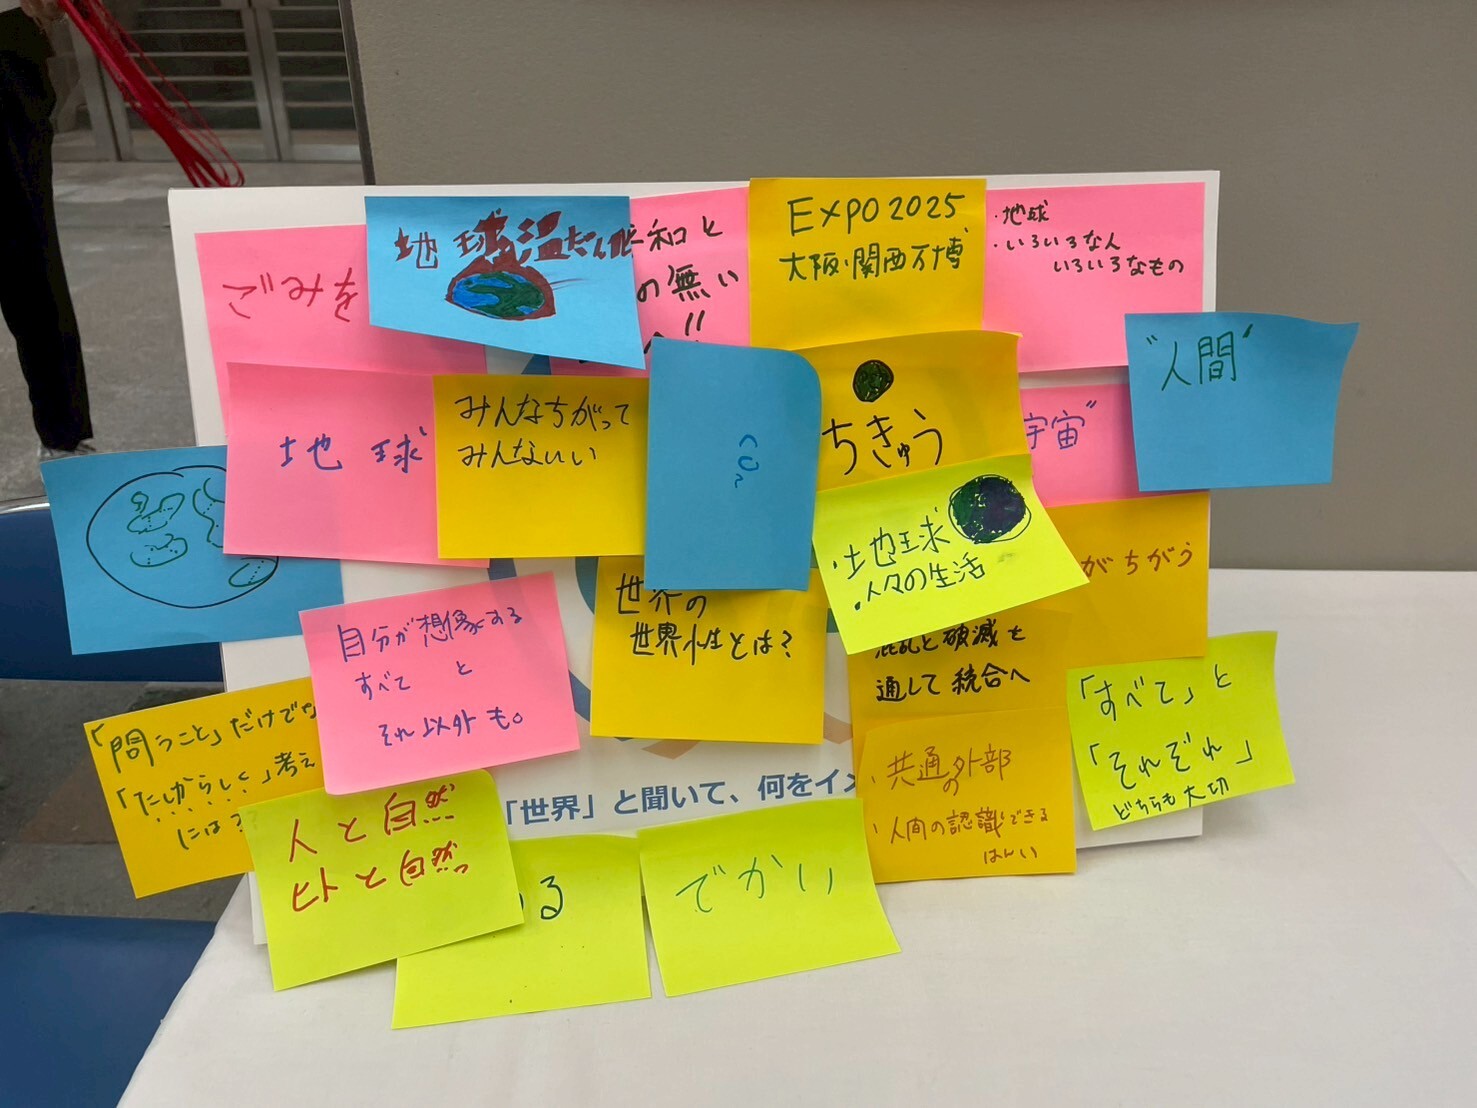 ごみを
地球温だん化
和と
の無い
へ!!
EXPO 2025
大阪・関西万博
・地球
・いろいろな人
いろいろなもの
"人間"
地球
みんなちがって
みんないい
CO₂
ちきゅう
宇宙"
・地球
・人々の生活
がちがう
自分が想像する
すべて と
それ以外も。
世界の
世界性とは?
混乱と破滅を
通して統合へ
「すべて」と
「それぞれ」
どちらも大切
「問うこと」だけでな
「たしからしく」考え
には
人と自然
ヒトと自然
「世界」と聞いて、何をイメ
・共通の外部
・人間の認識できる
はんい
る
でかい